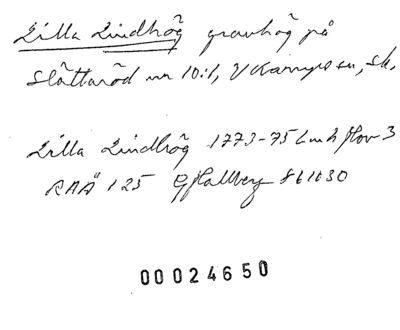 Lilla Lindhög gravhög på
Slättaröd nr 10:1, V Karups sn, Sk.
Lilla Lindhög 1773-75 Lmh flov 3
RAÄ 125 G Hallberg 861030
00024650